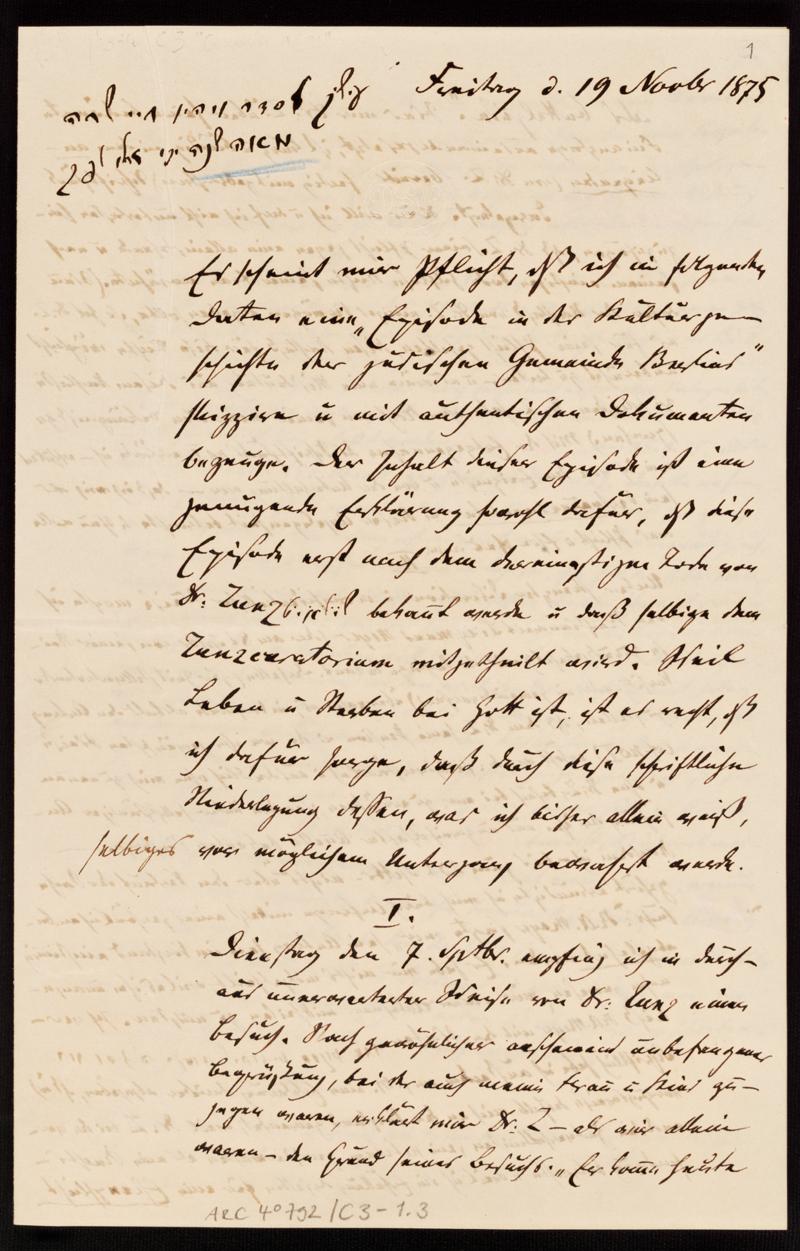 1
Freitag d. 19 Novbr 1875
לסדר ויהיו חיי שרה
מאה שנה
Es scheint mir Pflicht, dß ich in folgenden
Daten eine „Episode in der Kulturge-
schichte der jüdischen Gemeinde Berlins“
skizzire u mit authentischen Dokumenten
bezeuge. Der Inhalt dieser Episode ist eine
genügende Erklärung sowohl dafür, dß diese
Episode erst nach dem dereinstigen Tode von
Dr. Zunz bekannt werde u daß selbige dem
Zunzcuratorium mitgetheilt wird. Weil
Leben u Sterben bei Gott ist, ist es recht, dß
ich dafür sorge, daß durch diese schriftliche
Niederlegung dessen, was ich bisher allein weiß,
selbiges vor möglichem Untergang bewahrt werde.
I.
Dienstag den 7. Sptbr. empfing ich in durch-
aus unerwarteter Weise von Dr. Zunz einen
Besuch. Nach gewöhnlicher anscheinend unbefangener
Begrüßung, bei der auch meine Frau u Kind zu-
gegen waren, erklärt mir Dr. Z – als wir allein
waren – den Grund seines Besuchs. „Er komme heute
ARC 4° 792 / C3 - 1.3